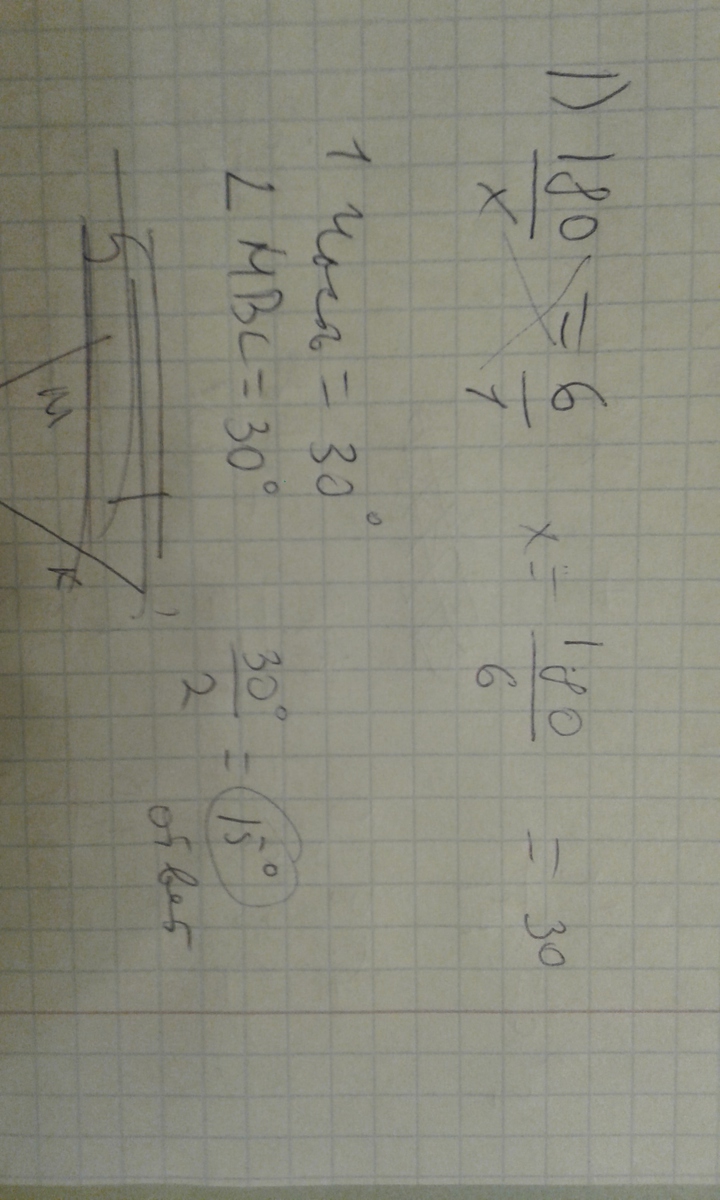 1) 180/x = 6/1 x = 180/6 = 30
1 часть = 30°
∠ MBC = 30° 30°/2 = 15°
ответ
M K